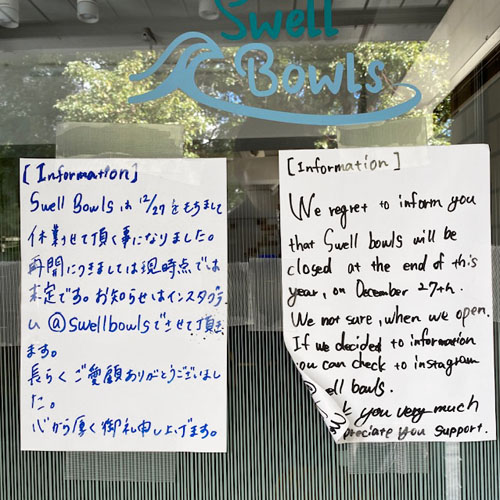 Swell
Bowls
[Information]
Swell Bowls は 12/27 をもちまして
休業させて頂く事になりました。
再開につきましては現時点では
未定です。お知らせはインスタグラ
ム @swellbowlsでさせて頂き
ます。
長らくご愛顧ありがとうございまし
た。
心から厚く御礼申し上げます。
[Information]
We regret to inform you
that Swell bowls will be
closed at the end of this
year, on December 27th.
We not sure, when we open.
If we decided to information
you can check to instagram
@ ell bowls.
you very much
preciate you support.